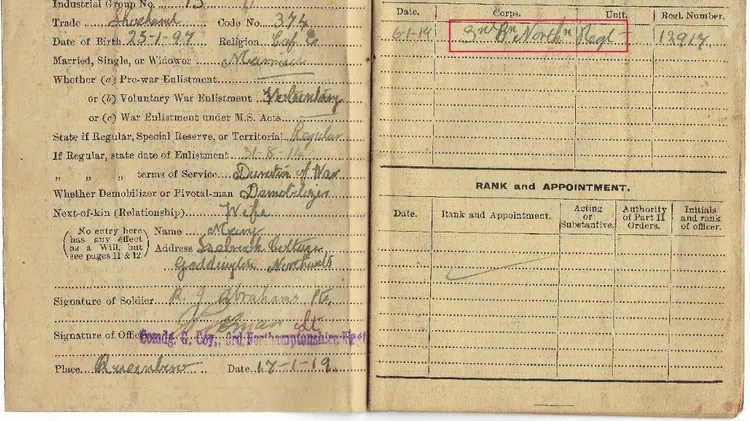 Industrial Group No. 13
Trade Shoehand Code No. 374
Date of Birth 25-1-97 Religion C of E
Married, Single, or Widower Married
Whether (a) Pre-war Enlistment
or (b) Voluntary War Enlistment Voluntary
or (c) War Enlistment under M.S. Acts
State if Regular, Special Reserve, or Territorial Regular
If Regular, state date of Enlistment 31-8-14
" " " terms of Service Duration of War
Whether Demobilizer or Pivotal-man Demobilizer
Next-of-kin (Relationship) Wife
(No entry here has any effect as a Will, but see pages 11 & 12.)
Name Mary
Address
Geddington Northants
Signature of Soldier R. J. Abrahams Pte
Signature of Officer Lt
Comdg. G. Coy., 3rd Northamptonshire Regt
Place Date 17-1-19
Date. Corps. Unit. Regl. Number.
6-1-19 3rd Bn North'n Regt 13917
RANK and APPOINTMENT.
Date. Rank and Appointment. Acting or Substantive. Authority of Part II Orders. Initials and rank of officer.